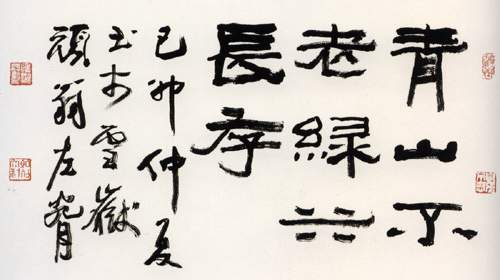 青山不
老綠水
長存
己卯仲夏
書於雪嶽
頑翁左